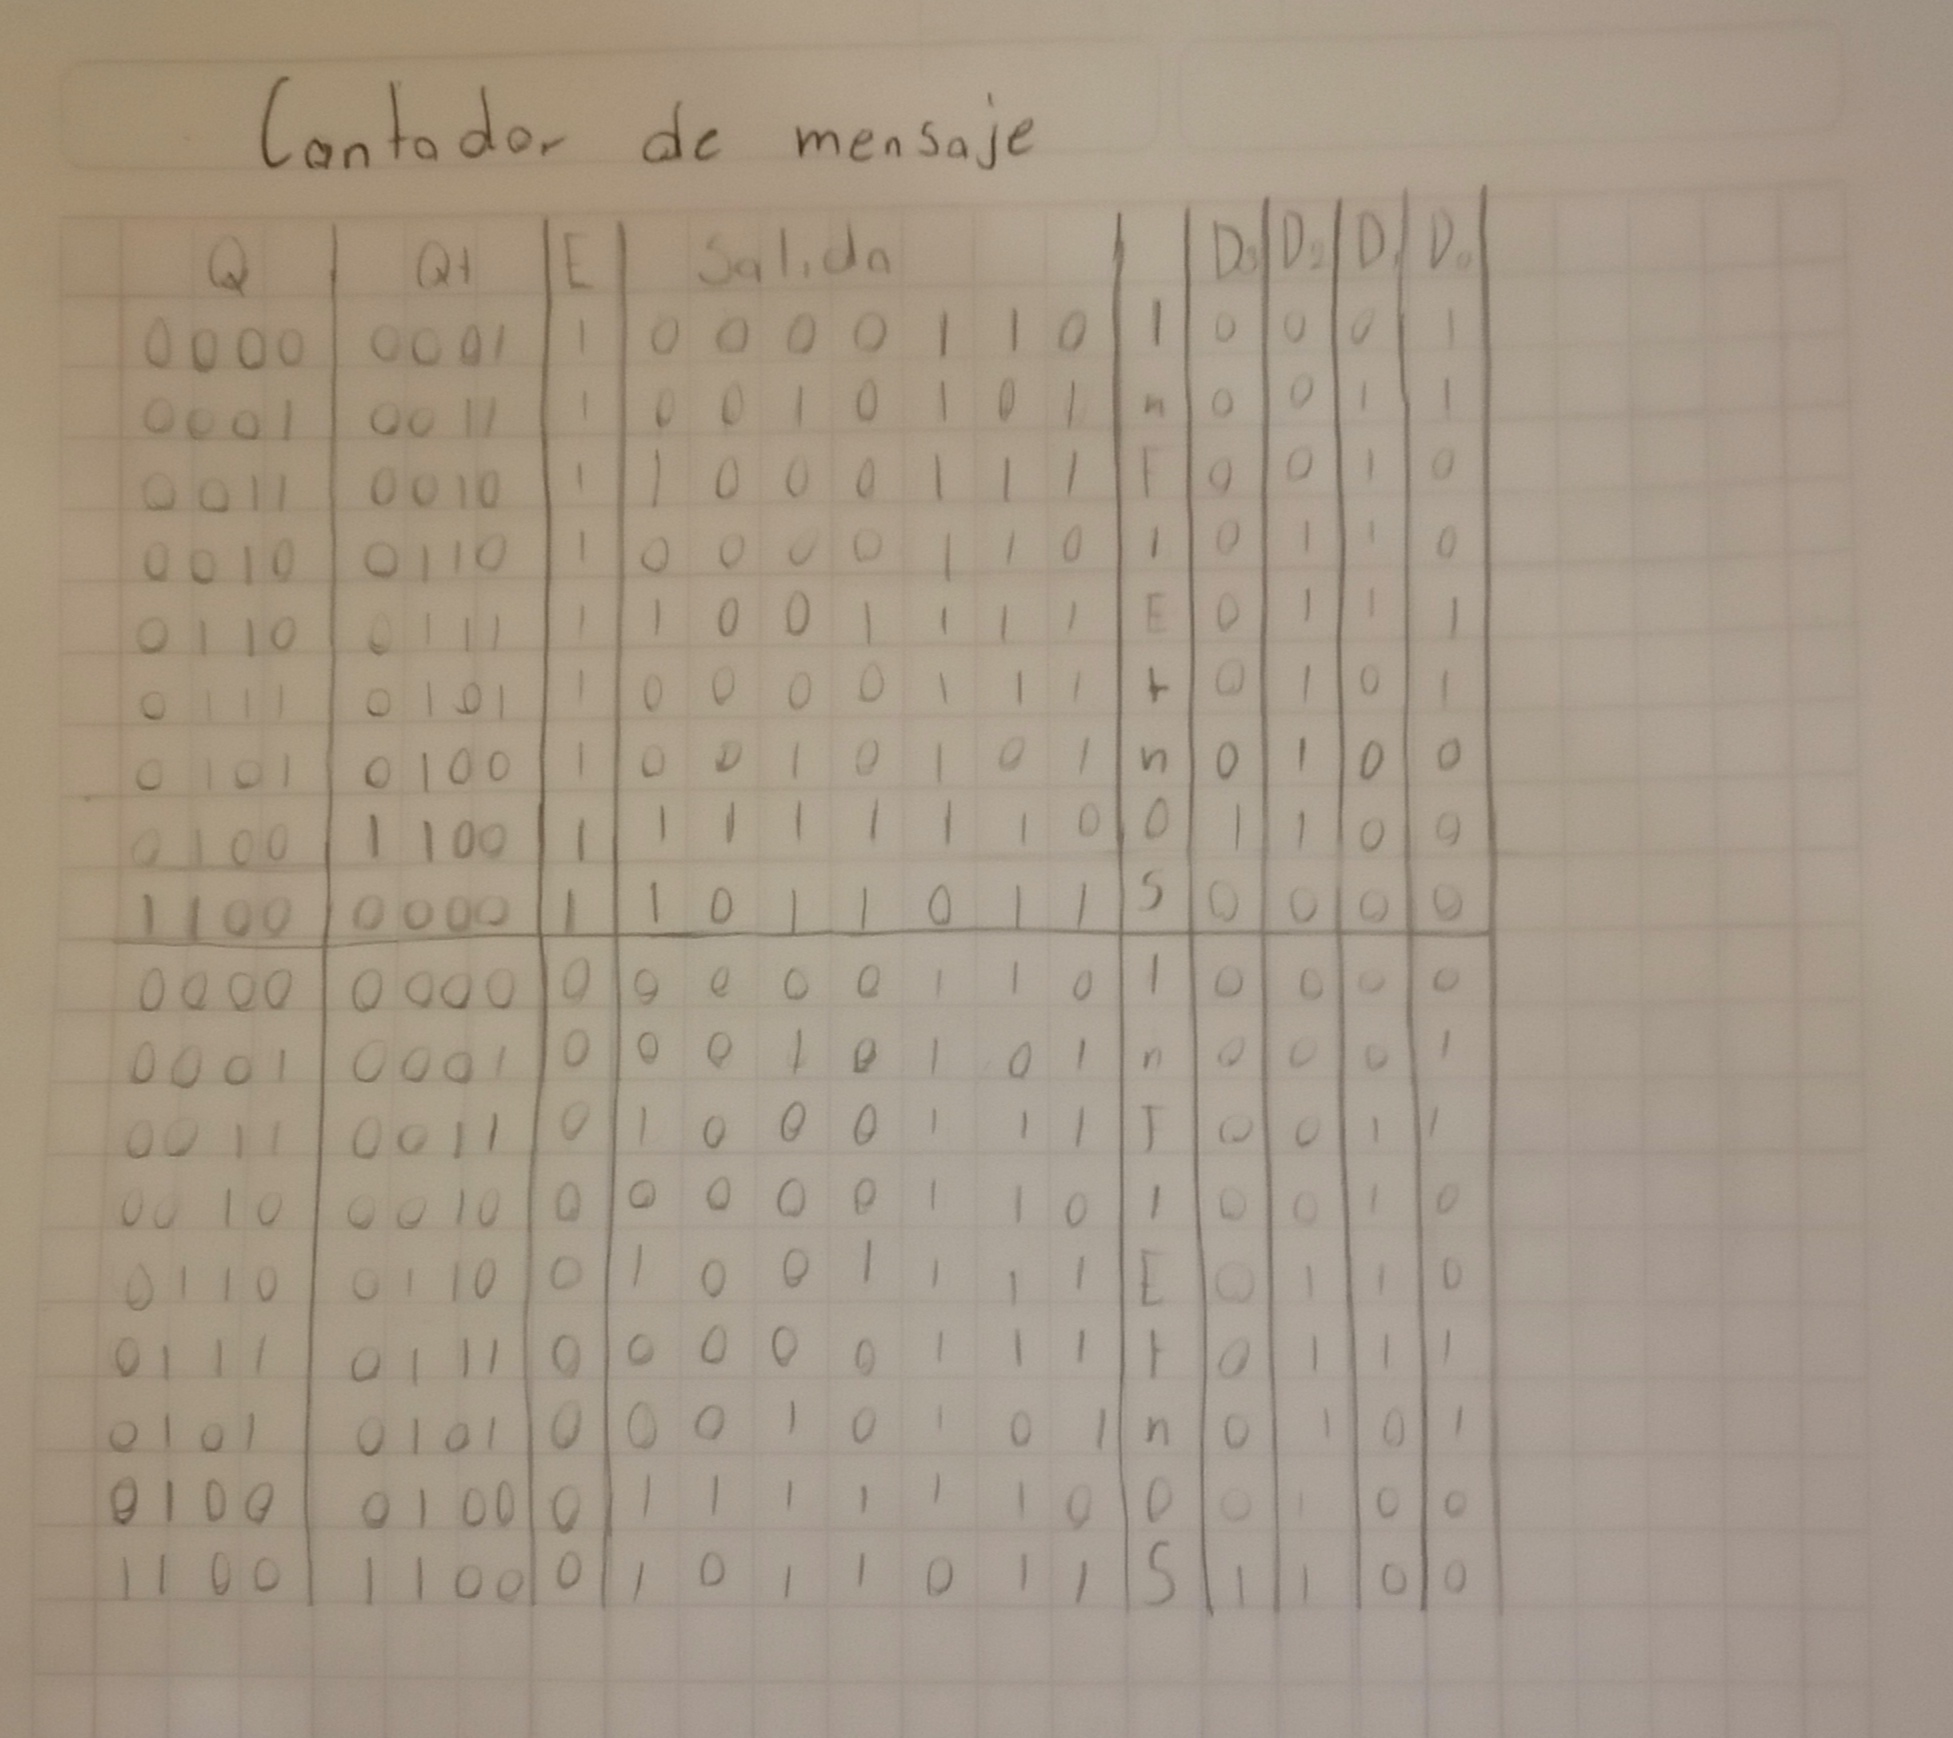 Contador de mensaje
Q Q+ E Salida D3 D2 D1 D0
0000 0001 1 0 0 0 0 1 1 0 I 0 0 0 1
0001 0011 1 0 0 1 0 1 0 1 n 0 0 1 1
0011 0010 1 1 0 0 0 1 1 1 F 0 0 1 0
0010 0110 1 0 0 0 0 1 1 0 I 0 1 1 0
0110 0111 1 1 0 0 1 1 1 1 E 0 1 1 1
0111 0101 1 0 0 0 0 1 1 1 r 0 1 0 1
0101 0100 1 0 0 1 0 1 0 1 n 0 1 0 0
0100 1100 1 1 1 1 1 1 1 0 O 1 1 0 0
1100 0000 1 1 0 1 1 0 1 1 S 0 0 0 0
0000 0000 0 0 0 0 0 1 1 0 I 0 0 0 0
0001 0001 0 0 0 1 0 1 0 1 n 0 0 0 1
0011 0011 0 1 0 0 0 1 1 1 F 0 0 1 1
0010 0010 0 0 0 0 0 1 1 0 I 0 0 1 0
0110 0110 0 1 0 0 1 1 1 1 E 0 1 1 0
0111 0111 0 0 0 0 0 1 1 1 r 0 1 1 1
0101 0101 0 0 0 1 0 1 0 1 n 0 1 0 1
0100 0100 0 1 1 1 1 1 1 0 O 0 1 0 0
1100 1100 0 1 0 1 1 0 1 1 S 1 1 0 0